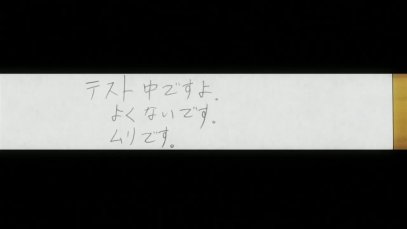 テスト中ですよ。
よくないです。
ムリです。